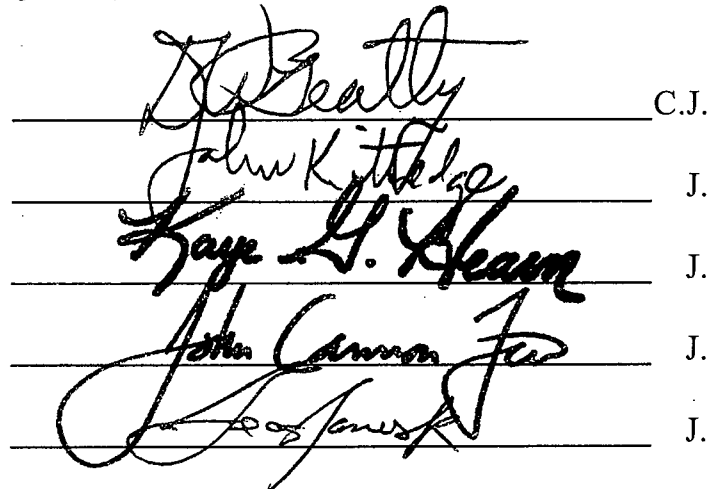 D W Beatty C.J.
John Kittredge J.
Kaye G. Hearn J.
John Cannon Few J.
Geo James Jr J.